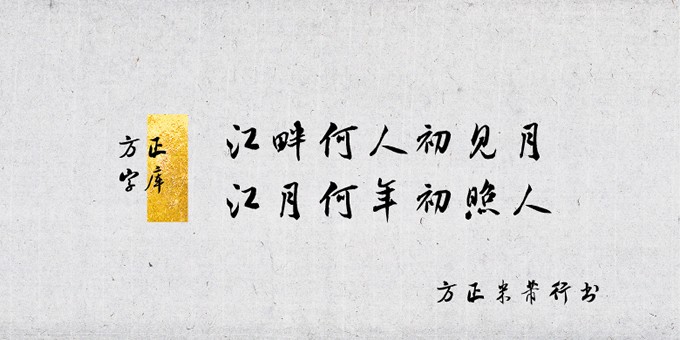 方正
字库
江畔何人初见月
江月何年初照人
方正米芾行书